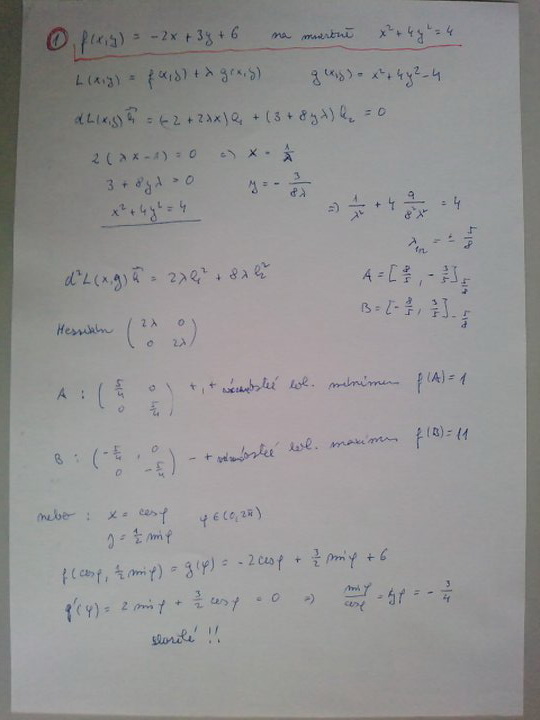 ① f(x,y) = -2x + 3y + 6 na množině x² + 4y² = 4
L(x,y) = f(x,y) + λ g(x,y) g(x,y) = x² + 4y² - 4
dL(x,y) h = (-2 + 2λx) h₁ + (3 + 8yλ) h₂ = 0
2(λx - 1) = 0 ⇒ x = 1/λ
3 + 8yλ = 0 y = - 3/(8λ)
x² + 4y² = 4 ⇒ 1/λ² + 4 9/(8²λ²) = 4
λ₁,₂ = ± 5/8
d²L(x,y) h = 2λh₁² + 8λh₂² A = [8/5, -3/5] 5/8
B = [-8/5, 3/5] -5/8
Hessián (2λ 0
0 2λ)
A : (5/4 0
0 5/4) +,+ lok. minimum f(A) = 1
B : (-5/4, 0
0 -5/4) - + lok. maximum f(B) = 11
nebo : x = cosφ φ ∈ (0, 2π)
y = 1/2 sinφ
f(cosφ, 1/2 sinφ) = g(φ) = -2cosφ + 3/2 sinφ + 6
g'(φ) = 2 sinφ + 3/2 cosφ = 0 ⇒ sinφ/cosφ = tgφ = - 3/4
složité !!